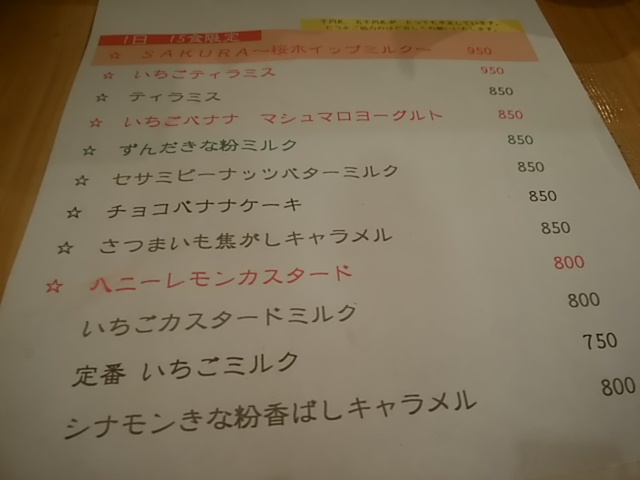 1日 15食限定
☆ SAKURA~桜ホイップミルク~ 950
☆ いちごティラミス 950
☆ ティラミス 850
☆ いちごバナナ マシュマロヨーグルト 850
☆ ずんだきな粉ミルク 850
☆ セサミピーナッツバターミルク 850
☆ チョコバナナケーキ 850
☆ さつまいも焦がしキャラメル 850
☆ ハニーレモンカスタード 800
いちごカスタードミルク 800
定番 いちごミルク 750
シナモンきな粉香ばしキャラメル 800